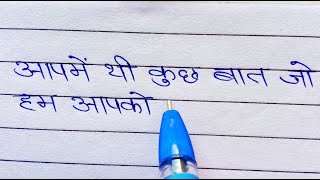 आपमें थी कुछ बात जो
हम आपको